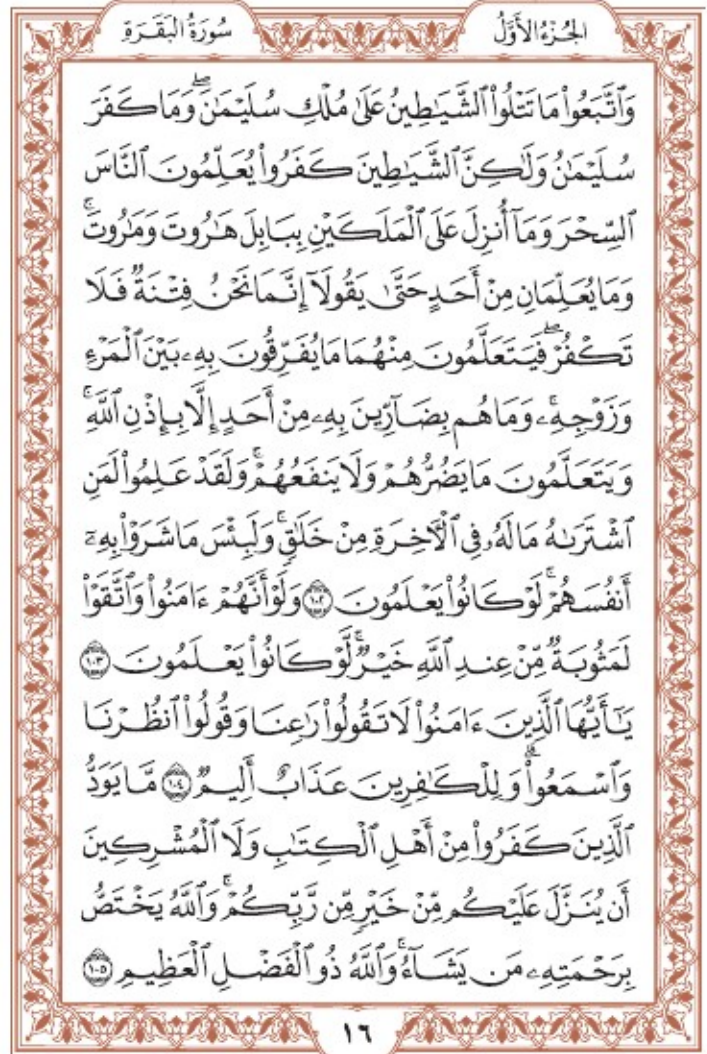 سُورَةُ البَقَرَةِ
الجُزْءُ الأَوَّلُ
وَٱتَّبَعُوا۟ مَا تَتْلُوا۟ ٱلشَّيَٰطِينُ عَلَىٰ مُلْكِ سُلَيْمَٰنَۖ وَمَا كَفَرَ
سُلَيْمَٰنُ وَلَٰكِنَّ ٱلشَّيَٰطِينَ كَفَرُوا۟ يُعَلِّمُونَ ٱلنَّاسَ
ٱلسِّحْرَ وَمَآ أُنزِلَ عَلَى ٱلْمَلَكَيْنِ بِبَابِلَ هَٰرُوتَ وَمَٰرُوتَۚ
وَمَا يُعَلِّمَانِ مِنْ أَحَدٍ حَتَّىٰ يَقُولَآ إِنَّمَا نَحْنُ فِتْنَةٌ فَلَا
تَكْفُرْۖ فَيَتَعَلَّمُونَ مِنْهُمَا مَا يُفَرِّقُونَ بِهِۦ بَيْنَ ٱلْمَرْءِ
وَزَوْجِهِۦۚ وَمَا هُم بِضَآرِّينَ بِهِۦ مِنْ أَحَدٍ إِلَّا بِإِذْنِ ٱللَّهِۚ
وَيَتَعَلَّمُونَ مَا يَضُرُّهُمْ وَلَا يَنفَعُهُمْۚ وَلَقَدْ عَلِمُوا۟ لَمَنِ
ٱشْتَرَىٰهُ مَا لَهُۥ فِى ٱلْءَاخِرَةِ مِنْ خَلَٰقٍۚ وَلَبِئْسَ مَا شَرَوْا۟ بِهِۦٓ
أَنفُسَهُمْۚ لَوْ كَانُوا۟ يَعْلَمُونَ ١٠٢ وَلَوْ أَنَّهُمْ ءَامَنُوا۟ وَٱتَّقَوْا۟
لَمَثُوبَةٌ مِّنْ عِندِ ٱللَّهِ خَيْرٌۚ لَّوْ كَانُوا۟ يَعْلَمُونَ ١٠٣
يَٰٓأَيُّهَا ٱلَّذِينَ ءَامَنُوا۟ لَا تَقُولُوا۟ رَٰعِنَا وَقُولُوا۟ ٱنظُرْنَا
وَٱسْمَعُوا۟ۗ وَلِلْكَٰفِرِينَ عَذَابٌ أَلِيمٌ ١٠٤ مَّا يَوَدُّ
ٱلَّذِينَ كَفَرُوا۟ مِنْ أَهْلِ ٱلْكِتَٰبِ وَلَا ٱلْمُشْرِكِينَ
أَن يُنَزَّلَ عَلَيْكُم مِّنْ خَيْرٍ مِّن رَّبِّكُمْۗ وَٱللَّهُ يَخْتَصُّ
بِرَحْمَتِهِۦ مَن يَشَآءُۚ وَٱللَّهُ ذُو ٱلْفَضْلِ ٱلْعَظِيمِ ١٠٥
١٦